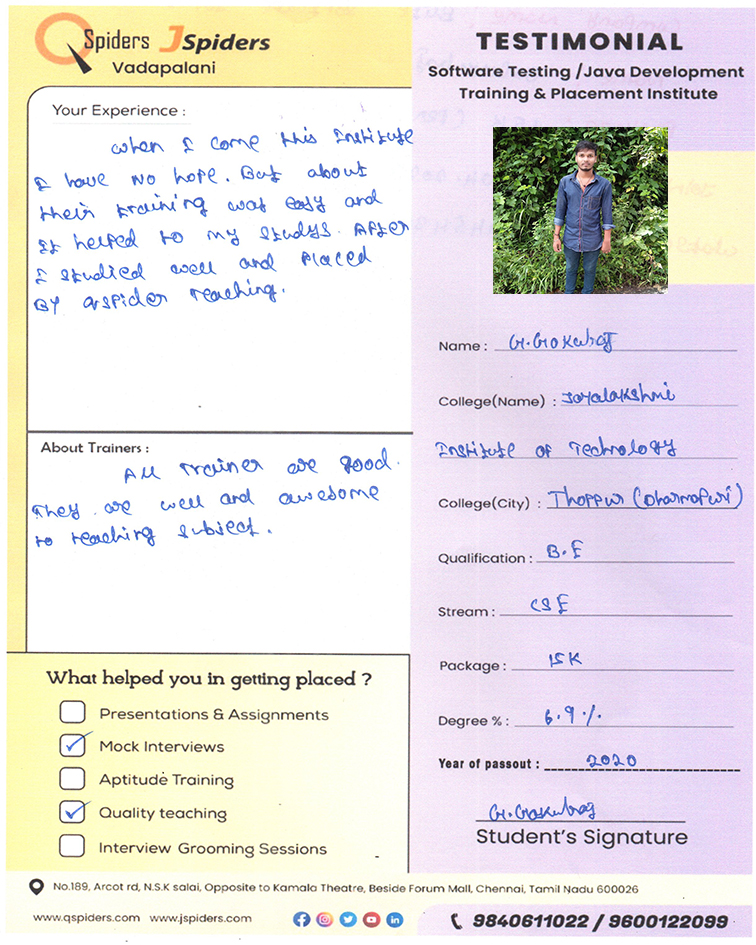 QSpiders JSpiders
Vadapalani
TESTIMONIAL
Software Testing /Java Development
Training & Placement Institute
Your Experience :
when I come this Institute
I have no hope. But about
their training was easy and
It helped to my studys. After
I studied well and Placed
By qspider Teaching.
Name : G.Gokulraj
College(Name) : Jayalakshmi
Institute of Technology
College(City) : Thoppur (Dharmapuri)
Qualification : B.E
Stream : CSE
Package : 15K
Degree % : 6.9 %.
Year of passout : 2020
G.Gokulraj
Student's Signature
About Trainers :
All Trainer are good.
They are well and awesome
to teaching subject.
What helped you in getting placed ?
Presentations & Assignments
Mock Interviews
Aptitude Training
Quality teaching
Interview Grooming Sessions
No.189, Arcot rd, N.S.K salai, Opposite to Kamala Theatre, Beside Forum Mall, Chennai, Tamil Nadu 600026
www.qspiders.com www.jspiders.com
9840611022 / 9600122099